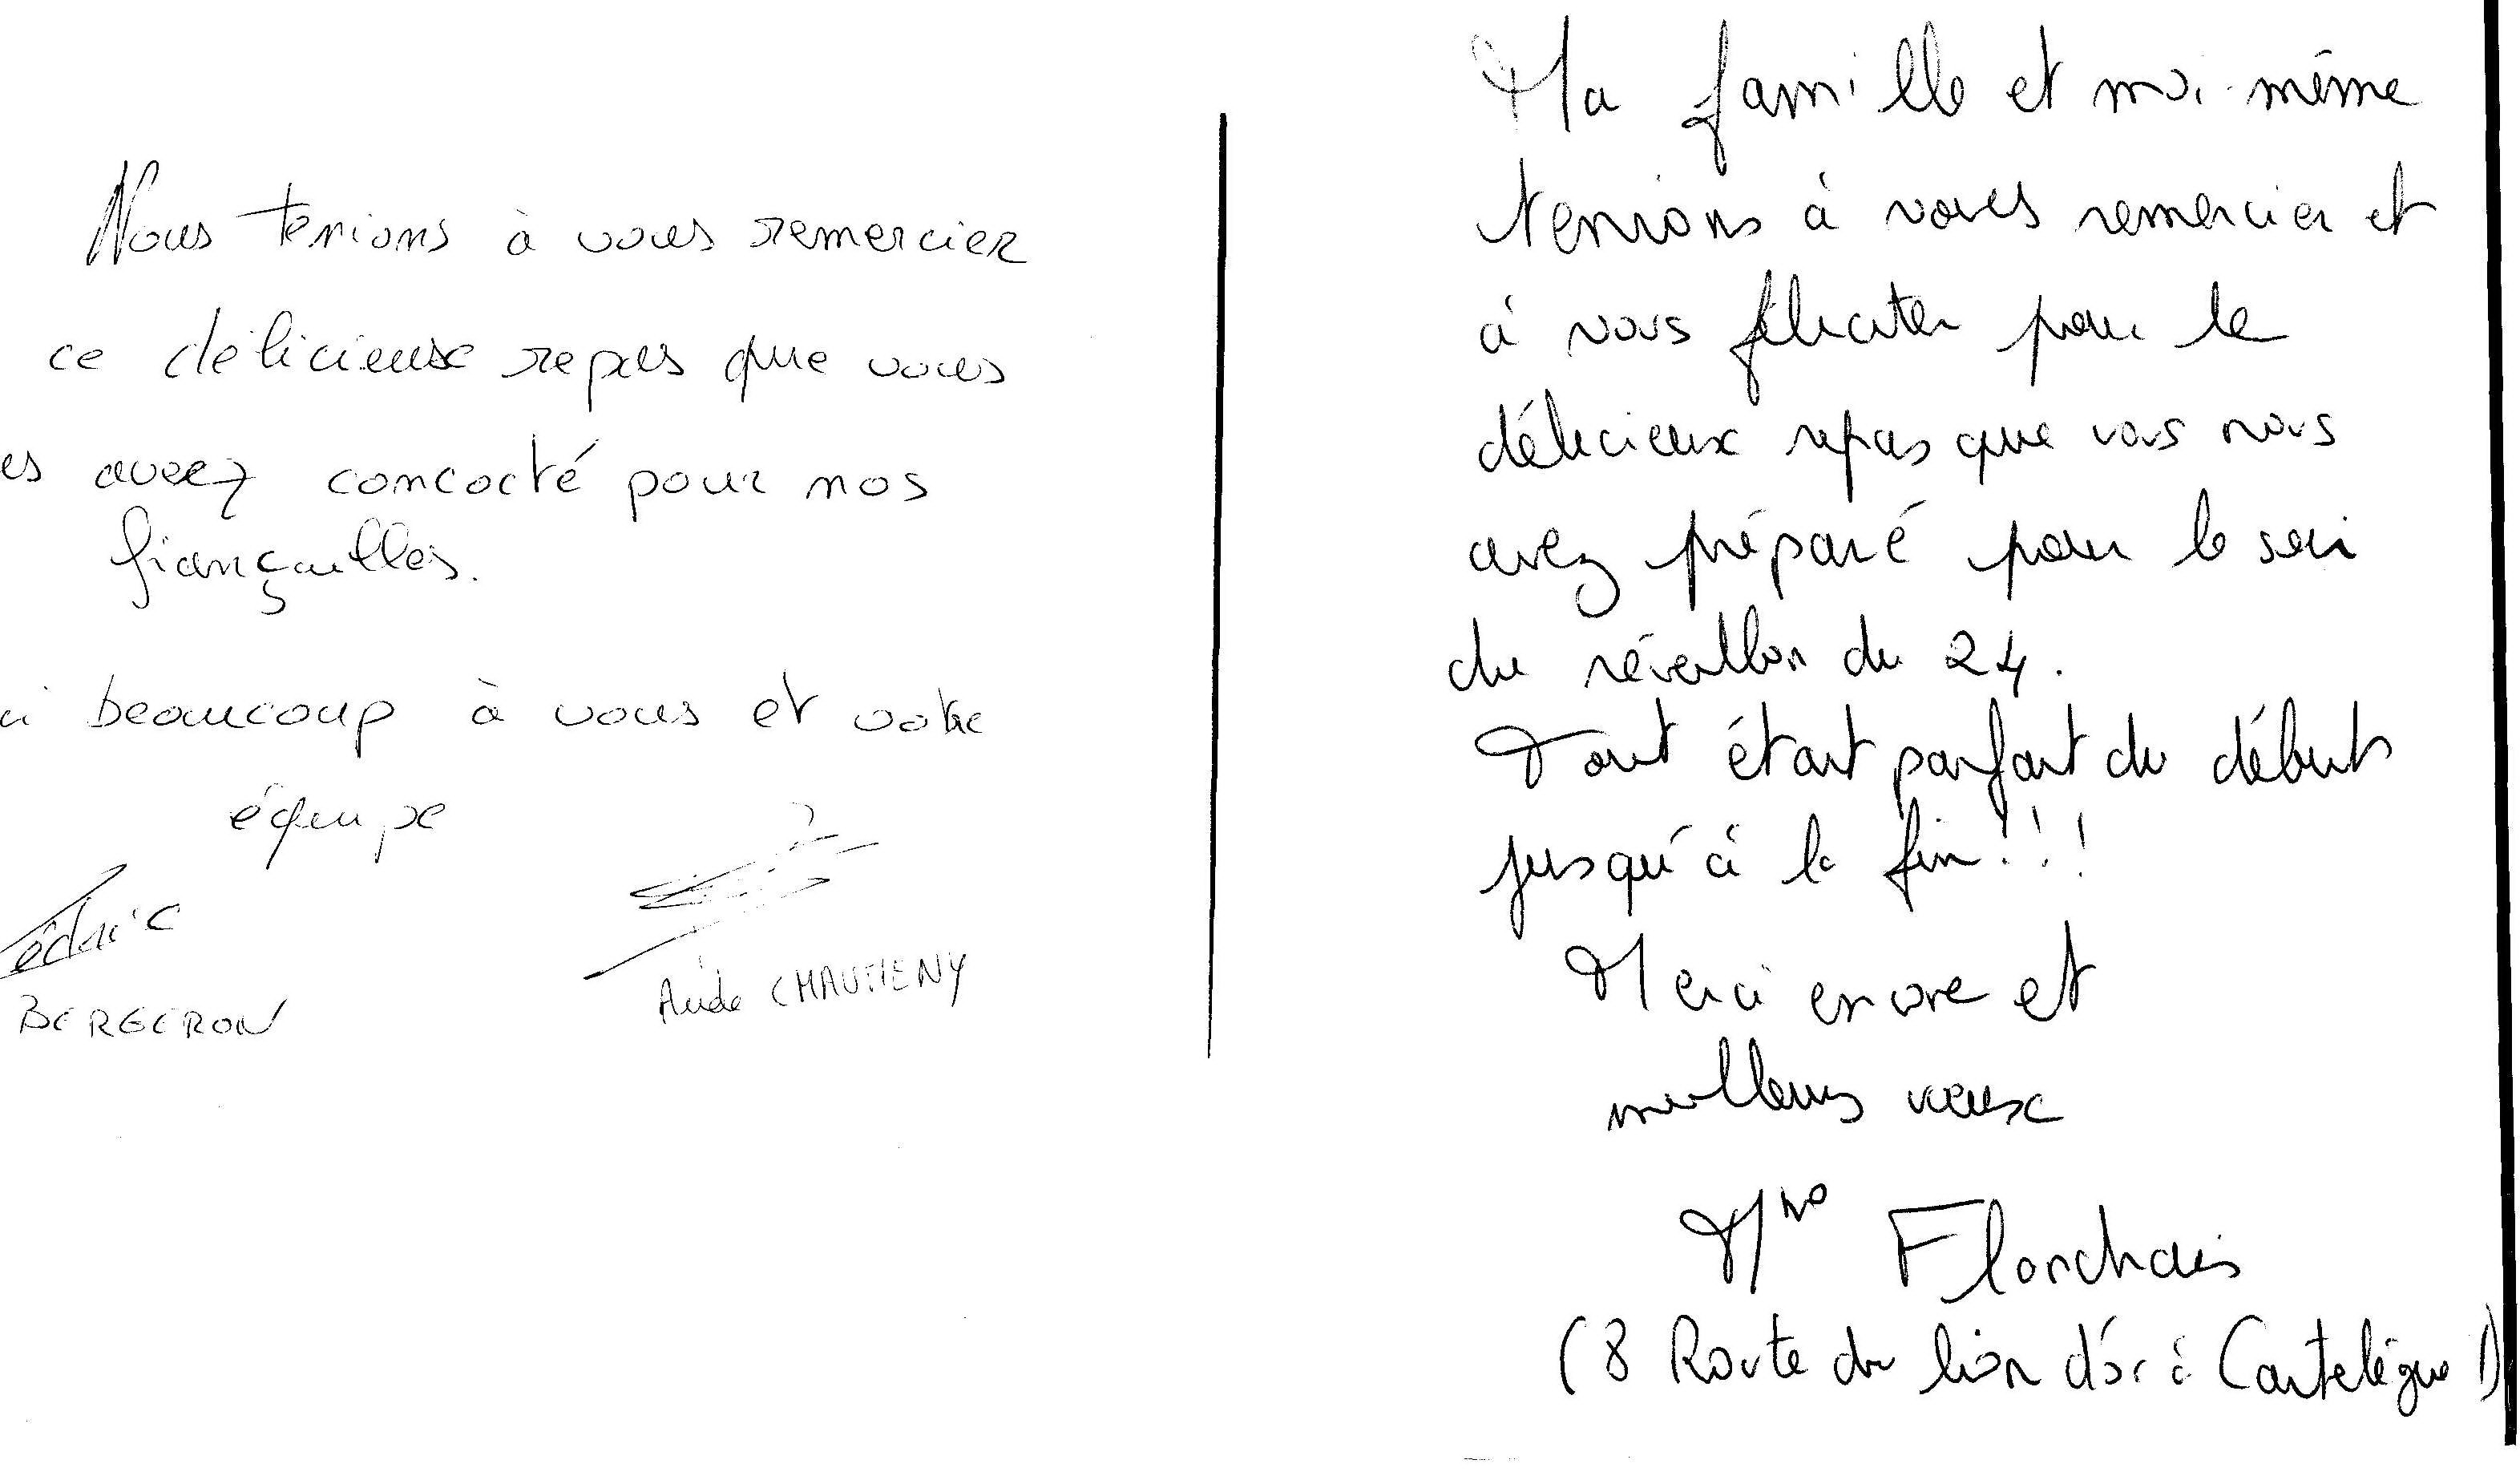 Nous tenions à vous remercier
ce délicieux repas que vous
es avez concocté pour nos
fiançailles.
ci beaucoup à vous et votre
équipe
édric
BERGERON
Aude
Ma famille et moi-même
tenions à vous remercier et
à vous féliciter pour le
délicieux repas que vous nous
avez préparé pour le soir
du réveillon du 24.
Tout était parfait du début
jusqu'à la fin!!!
Merci encore et
meilleurs vœux
Mme Flanchais
(8 Route du lion d'or à Cartelègue)